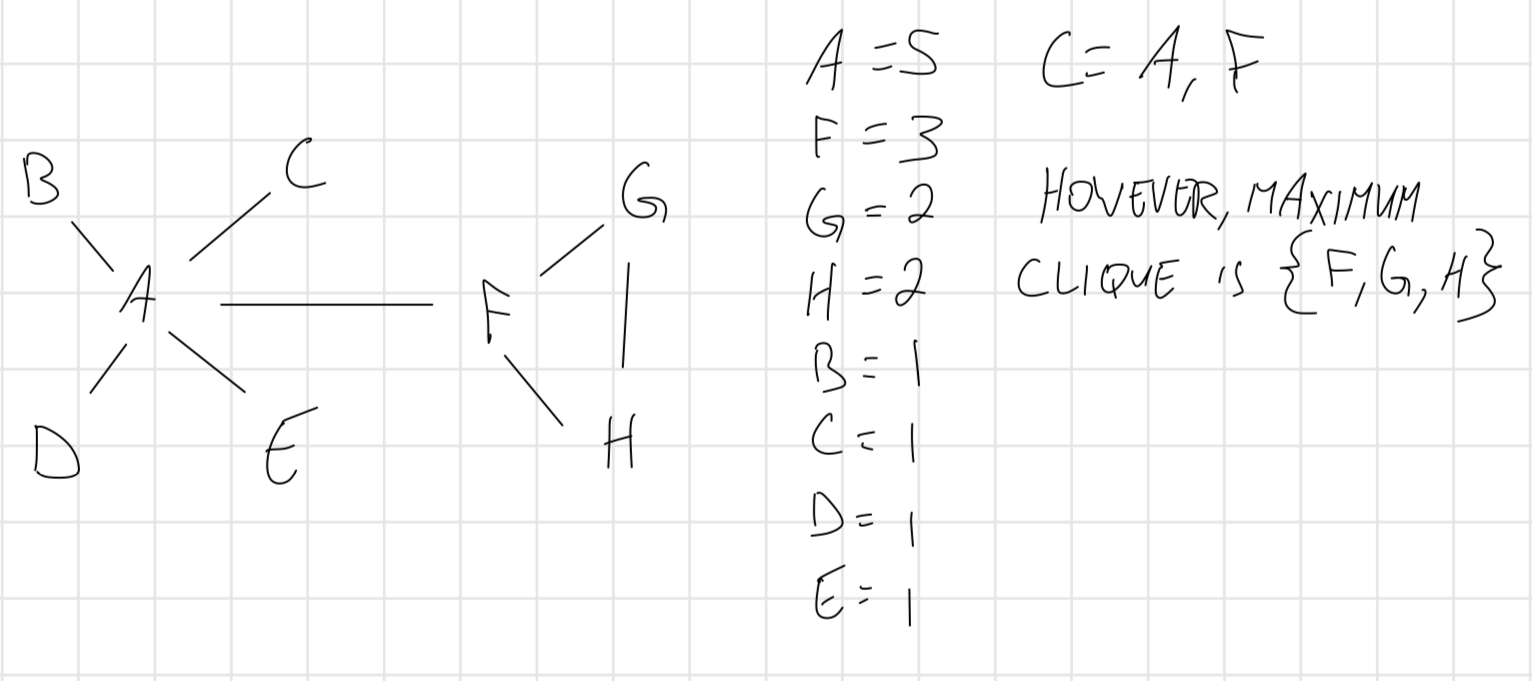 B
C
G
A
F
D
E
H
A = 5
F = 3
G = 2
H = 2
B = 1
C = 1
D = 1
E = 1
C = A, F
HOVEVER, MAXIMUM
CLIQUE IS {F, G, H}